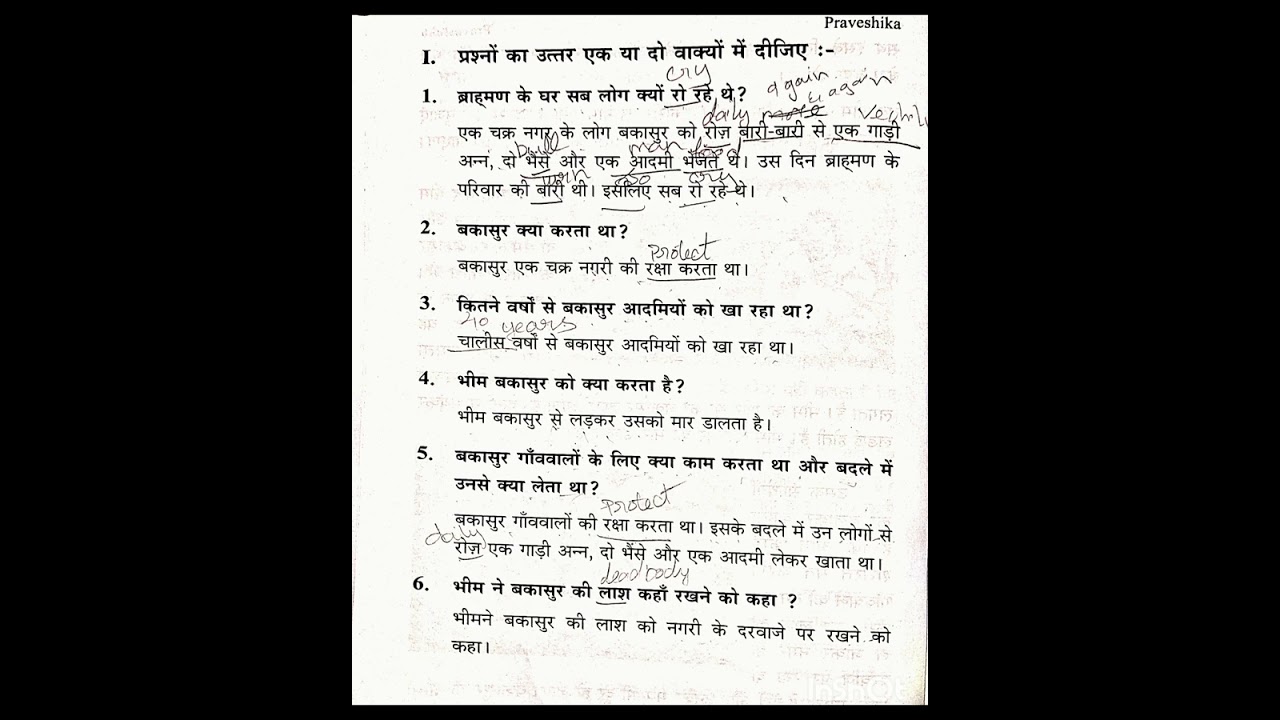 Praveshika
I. प्रश्नों का उत्तर एक या दो वाक्यों में दीजिए :-
cry
again
& again
1. ब्राह्मण के घर सब लोग क्यों रो रहे थे?
daily
एक चक्र नगर के लोग बकासुर को रोज़ बारी-बारी से एक गाड़ी
man food
अन्न, दो भैंसे और एक आदमी भेजते थे। उस दिन ब्राह्मण के
so cry
परिवार की बारी थी। इसलिए सब रो रहे थे।
2. बकासुर क्या करता था?
protect
बकासुर एक चक्र नगरी की रक्षा करता था।
3. कितने वर्षों से बकासुर आदमियों को खा रहा था?
40 years
चालीस वर्षों से बकासुर आदमियों को खा रहा था।
4. भीम बकासुर को क्या करता है?
भीम बकासुर से लड़कर उसको मार डालता है।
5. बकासुर गाँववालों के लिए क्या काम करता था और बदले में
उनसे क्या लेता था?
protect
बकासुर गाँववालों की रक्षा करता था। इसके बदले में उन लोगों से
daily
रोज़ एक गाड़ी अन्न, दो भैंसे और एक आदमी लेकर खाता था।
dead body
6. भीम ने बकासुर की लाश कहाँ रखने को कहा ?
भीमने बकासुर की लाश को नगरी के दरवाजे पर रखने को
कहा।